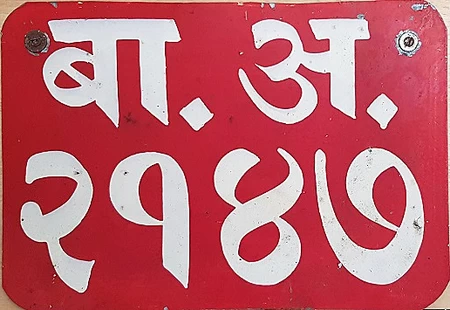 बा. अ.
२१४७